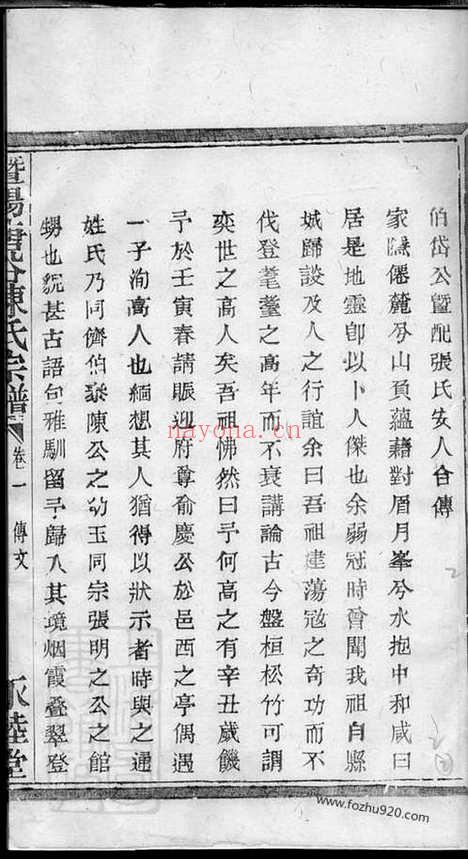 伯岱公暨配張氏安人合傳
家隱僊蔍兮山頁蘊藉對眉月峯兮水抱中和咸曰
居是地靈卽以卜人傑也余弱冠時曾聞我祖自縣
城歸談及人之行誼余曰吾祖建蕩冦之奇功而不
伐登耄耋之高年而不衰講論古今盤桓松竹可謂
奕世之高人矣吾祖怫然曰予何高之有辛丑歲饑
予於壬寅春請賑迎府尊俞慶公於邑西之亭偶遇
一子洵高人也緬想其人猶得以狀示者時與之通
姓氏乃同儕伯黎陳公之幼玉同宗張明之公之館
甥也貌甚古語句雅馴留予歸入其境烟霞叠翠登
暨陽 陳氏宗譜 卷一 傳文 永睦堂
nayona.cn
www.fozhu920.com